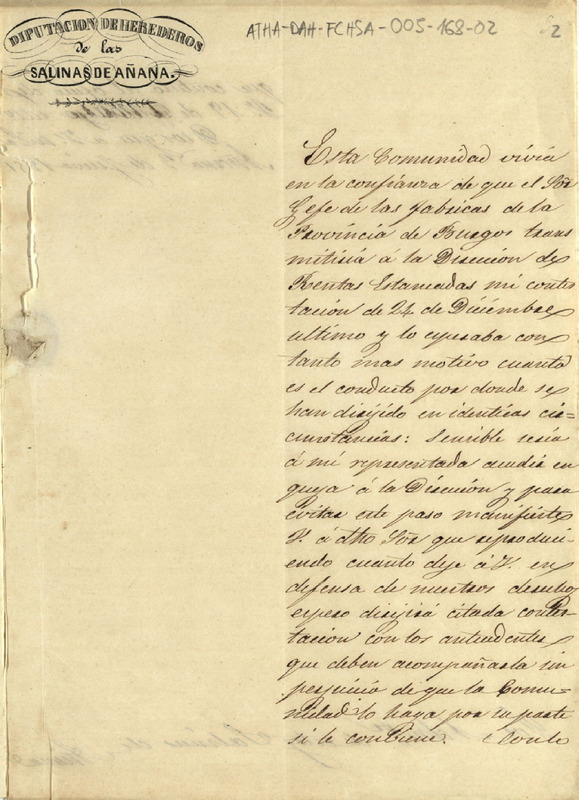 DIPUTACION DE HEREDEROS
de las
SALINAS DE AÑANA.
ATHA-DAH-FCHSA-005-168-02
2
Esta Comunidad vivia
en la confianza de que el Sõr
Gefe de las fabricas de la
Provincia de Burgos trans
mitiria á la Direccion de
Rentas Estancadas mi contes
tación de 24 de Diciembre
ultimo y lo esperaba con
tanto mas motivo cuanto
es el conducto por donde se
han dirijido en identicas cir=
cunstancias: Sensible seria
á mi representada acudir en
queja á la Direccion y para
evitar este paso manifieste
V. á dho Sõr que reproduci
endo cuanto dije á V. en
defensa de nuestros derechos
espero dirijirá citada contes-
tacion con los antecedentes
que deben acompañarla sin
perjuicio de que la Comu=
nidad lo haga por su parte
si le conbiene. Con lo